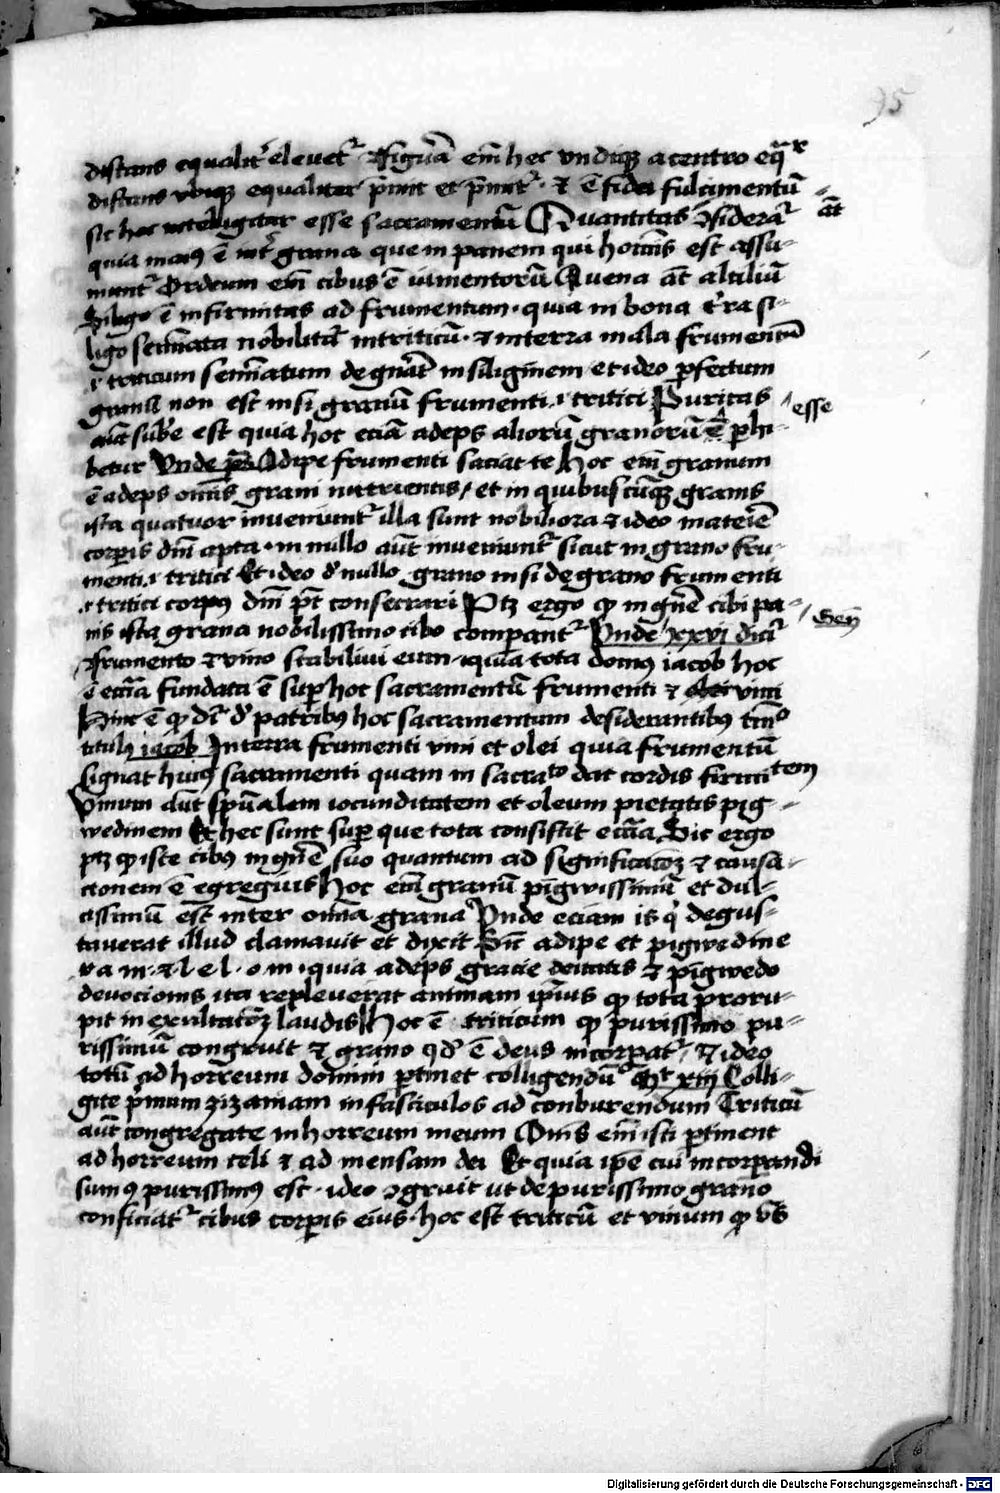 95
distans equalit᷑ eleuet᷑ figura em̄ hec vndiqꝫ a centro eq̄
distans vbiqꝫ equaliter p̄mit et p̄mit᷑ · & ē fidei fulcimentū
sic hoc intelligitur esse sacramentū Quantitas ꝯsiderat᷑ āt
quia maiꝰ ē int᷑ grana que in panem qui hoīnis est assu-
munt᷑ Ordeum em̄ cibus ē iumentorū Auena āt altiliū
Siligo ē infirmitas ad frumentum · quia in bona t᷑ra si-
ligo semīata nobilitat᷑ in triticū · & in terra mala frumentū
.i. triticum semīatum degn̄at᷑ in siliginem et ideo ꝑfectum
granū non est nisi granū frumenti .i. tritici Puritas
aūt subē est quia hoc eciā adeps aliorū granorū esse ꝑhi-
betur Vnde p̄s Adipe frumenti saciat te Hoc em̄ granum
ē adeps om̄is grani nutrientis / et in quibuscūqꝫ granis
ista quatuor inueniunt᷑ illa sunt nobiliora & ideo materiē
corꝑis dn̄i apta · in nullo aūt inueniunt᷑ sicut in grano fru-
menti .i. tritici Et ideo d᷑ nullo grano nisi de grano frumenti
.i. tritici corpꝰ dn̄i pt̄ consecrari Ptꝫ ergo ꝙ in gn̄e cibi pa-
nis ista grana nobilissimo cibo comparant᷑ Vnde Gen̄ xxvij dicit᷑
frumento & vino stabiliui eum · quia tota domꝰ iacob hoc
ē eccīa fundata ē suꝑ hoc sacramentū frumenti & vini
Hinc ē ꝙ dr̄ d᷑ patribꝰ hoc sacramentum desiderantibus
iacob In terra frumenti vini et olei quia frumentū
signat huiꝰ sacramenti quam in sacrato dat cordis firmitatem
Vinum aūt spūalem iocunditatem et oleum pietatis pig-
wedinem Et hec sunt suꝑ que tota consistit eccīa Sic ergo
ptꝫ ꝙ iste cibꝰ in gn̄e suo quantum ad significatōꝫ & causa-
cionem ē egregius Hoc em̄ granū pīgwissimū et dul-
cissimū est inter om̄ia grana Vnde eciam is qͥ degus-
tauerat illud clamauit et dixit Sic̄ adipe et pigwedine
r a m · & l e l · o m · quia adeps gracie deitatis & pīgwedo
deuocionis ita repleuerat animam ip̄ius ꝙ tota proru-
pit in exultatōꝫ laudis Hoc ē triticum ꝙ purissimo pu-
rissimū congruit & grano qd᷑ ē deus incorꝑat᷑ / & ideo
totū ad horreum domini ꝑtinet colligendū Mt xiij Colli-
gite p̄mum zizaniam in fasciculos ad conburendum Triticū
aūt congregate in horreum meum Om̄s em̄ isti ꝑtinent
ad horreum celi & ad mensam dei Et quia ip̄e cui incorꝑandi
sumꝰ purissimꝰ est · ideo ꝯgruit ut de purissimo grano
conficiat᷑ cibus corꝑis eius · hoc est triticū et vinum ꝙ
Digitalisierung gefördert durch die Deutsche Forschungsgemeinschaft - DFG